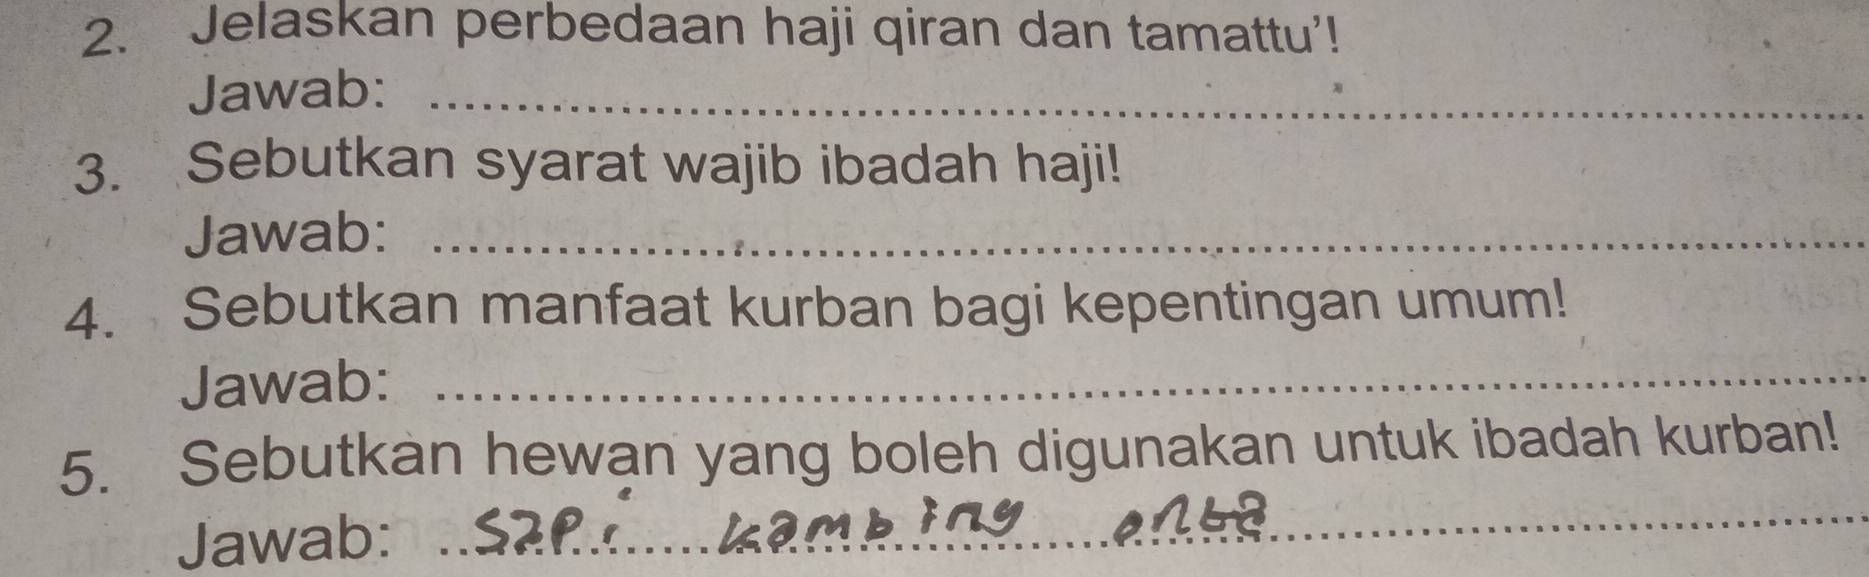 2. Jelaskan perbedaan haji qiran dan tamattu'!
Jawab: ........................................................
3. Sebutkan syarat wajib ibadah haji!
Jawab: ........................................................
4. Sebutkan manfaat kurban bagi kepentingan umum!
Jawab: ........................................................
5. Sebutkan hewan yang boleh digunakan untuk ibadah kurban!
Jawab: ..sapi......kambing......onta..............................